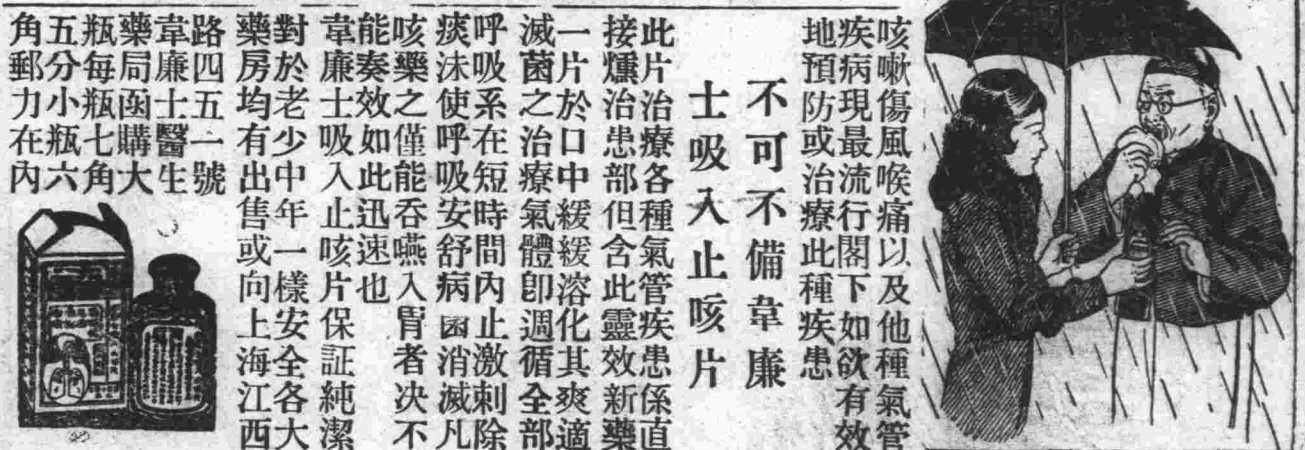 咳嗽傷風喉痛以及他種氣管
疾病現最流行閣下如欲有效
地預防或治療此種疾患
不可不備韋廉
士吸入止咳片
此片治療各種氣管疾患係直
接燻治患部但含此靈效新藥
一片於口中緩緩溶化其爽適
滅菌之治療氣體卽週循全部
呼吸系在短時間內止激刺除
痰沫使呼吸安舒病菌消滅凡
咳藥之僅能吞嚥入胃者決不
能奏效如此迅速也
韋廉士吸入止咳片保証純潔
對於老少中年一樣安全各大
藥房均有出售或向上海江西
路四五一號
韋廉士醫生
藥局函購大
瓶每瓶七角
五分小瓶六
角郵力在內